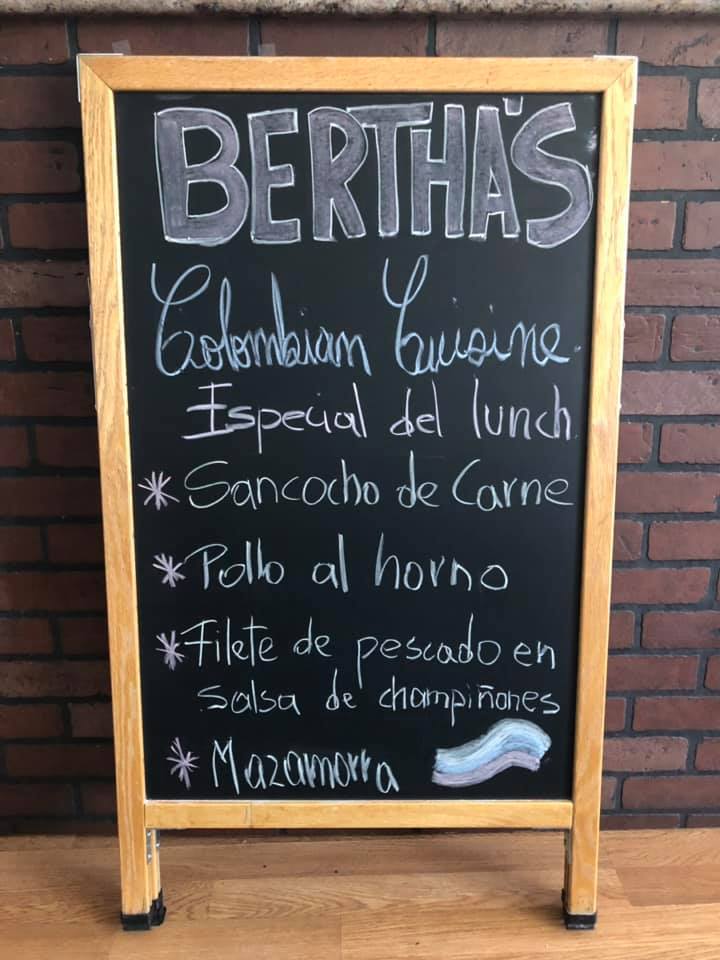 BERTHA'S
Colombian Cuisine.
Especial del lunch
* Sancocho de Carne
* Pollo al horno
* Filete de pescado en
salsa de champiñones
* Mazamorra